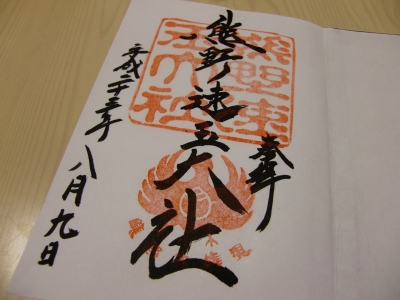 奉拝
熊野速玉大社
平成二十三年八月九日
熊野速
玉大社